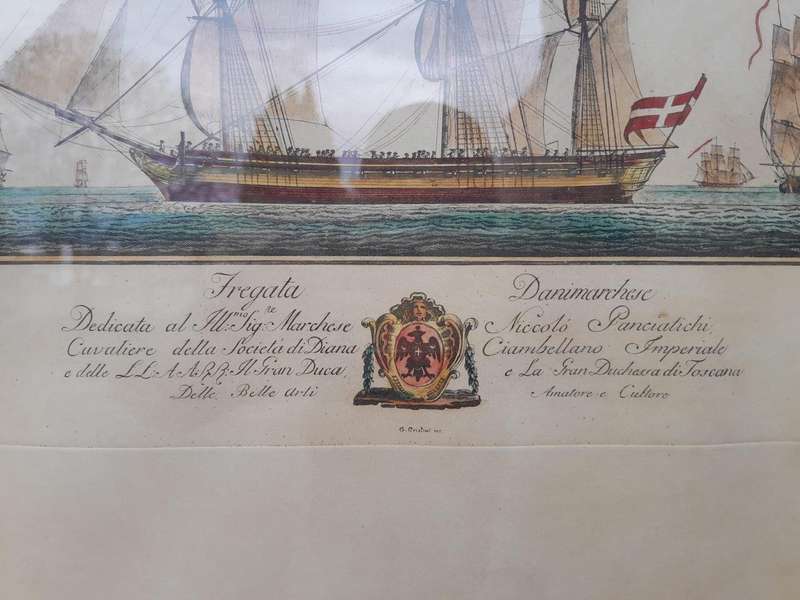 Fregata Danimarchese
Dedicata al Ill:mio Sig:te Marchese Niccoló Panciatichi,
Cavaliere della Societá di Diana Ciambellano Imperiale
e delle LL. A. A. R. R. Il Gran Duca, e La Gran Duchessa di Toscana
Delle Belle Arti Amatore e Cultore